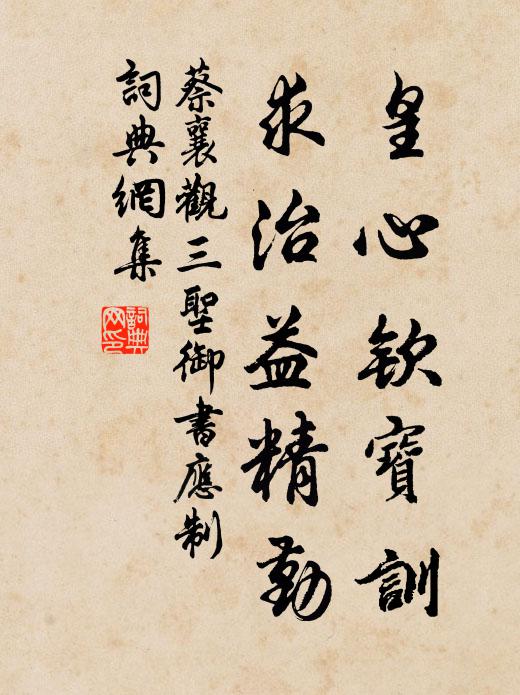 皇心欽寶訓
求治益精勤
蔡襄觀三聖御書應制
詞典網集
詞典網印